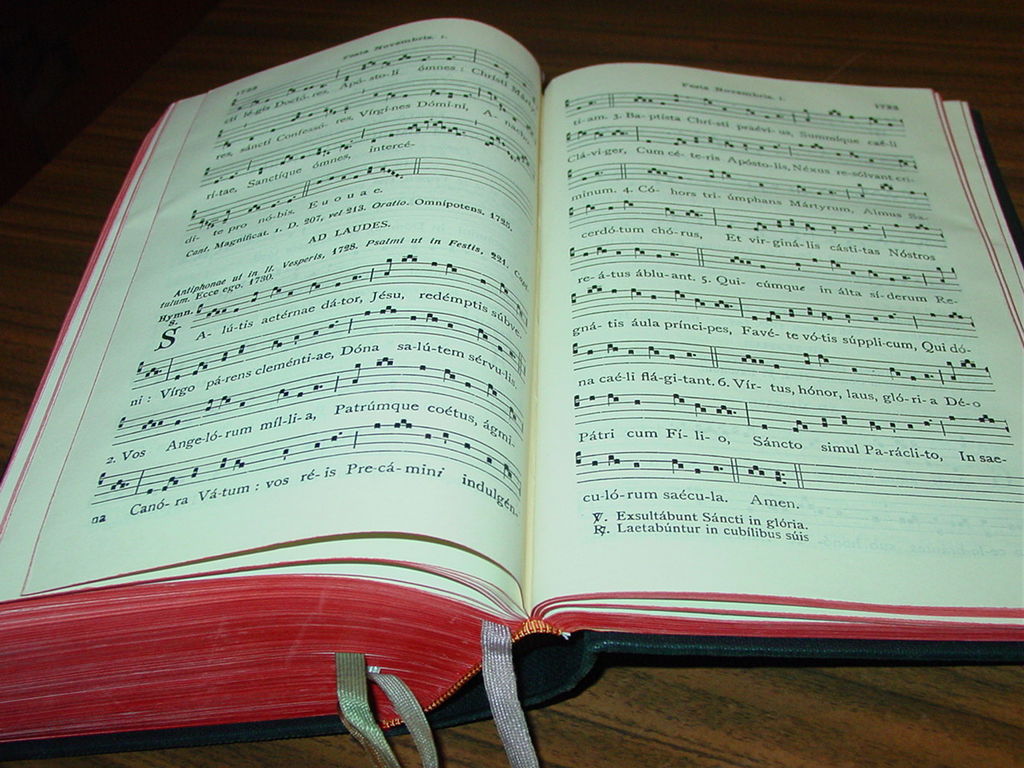 1722
Festa Novembris. 1.
cti légis Doctó- res, Apó- sto-li ómnes : Chrísti Már-
res, sáncti Confessó- res, Vírgi-nes Dómi-ni, A- nacho-
ri-tae, Sanctíque ómnes, intercé-
di- te pro nó-bis. E u o u a e.
Cant. Magníficat. 1. D. 207, vel 213. Oratio. Omnípotens. 1725.
AD LAUDES.
Antiphonae ut in II. Vesperis, 1728. Psalmi ut in Festis, 221.
tulum. Ecce ego. 1730.
Hymn.
8.
S A- lú-tis aetérnae dá-tor, Jésu, redémptis súbve-
ni : Vírgo pá-rens cleménti-ae, Dóna sa-lú-tem sérvu-lis.
2. Vos Ange-ló-rum míl-li-a, Patrúmque coétus, ágmi-
na Canó-ra Vá-tum : vos ré-is Pre-cá-mini indulgén-
Festa Novembris. 1.
1723
ti-am. 3. Ba-ptísta Chri-sti praévi-us, Summíque caé-li
Clá-vi-ger, Cum cé-te-ris Apósto-lis, Néxus re-sólvant crí-
minum. 4. Có- hors tri-úmphans Mártyrum, Almus Sa-
cerdó-tum chó-rus, Et vir-giná-lis cásti-tas Nóstros
re-á-tus áblu-ant. 5. Qui- cúmque in álta sí-derum Re-
gná-tis áula prínci-pes, Favé-te vó-tis súppli-cum, Qui dó-
na caé-li flá-gi-tant. 6. Vír- tus, hónor, laus, gló-ri-a Dé-o
Pátri cum Fí-li-o, Sáncto simul Pa-rácli-to, In sae-
cu-ló-rum saécu-la. Amen.
℣. Exsultábunt Sáncti in glória.
℟. Laetabúntur in cubílibus súis